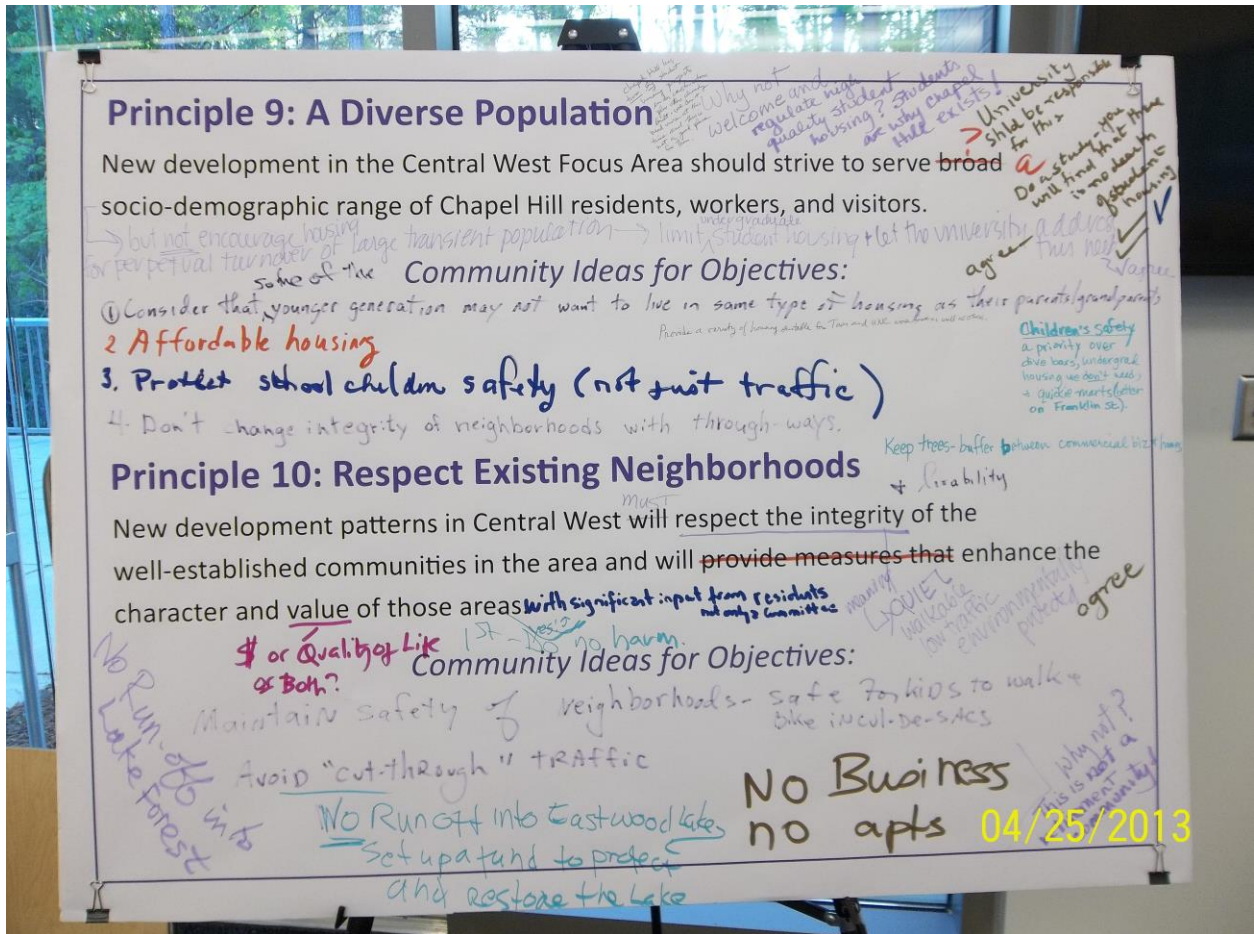 Principle 9: A Diverse Population
Why not
welcome and
regulate high
quality student
housing? Students
are why Chapel
Hill exists!
University
shld be responsible
for this
Do a study - you
will find that there
is no dearth
of student
housing
New development in the Central West Focus Area should strive to serve broad a
socio-demographic range of Chapel Hill residents, workers, and visitors.
but not encourage housing
for perpetual turnover of large transient population → limit undergraduate student housing + let the university address
this need
Vague
agree
Community Ideas for Objectives:
① Consider that some of the younger generation may not want to live in same type of housing as their parents/grandparents
Provide a variety of housing suitable for Town and UNC
2 Affordable housing
3. Protect school childen safety (not just traffic)
4. Don't change integrity of neighborhoods with through-ways.
Children's safety
a priority over
dive bars, undergrad
housing we don't need,
+ quickie marts (better
on Franklin St).
Keep trees-buffer between commercial biz +
Principle 10: Respect Existing Neighborhoods
+ livability
must
New development patterns in Central West will respect the integrity of the
well-established communities in the area and will provide measures that enhance the
character and value of those areas with significant input from residents
not only a committee
meaning
QUIET
walkable
low traffic
environmentally
protected
agree
$ or Quality of Life
or Both?
1st - Do no harm.
Yes!
Community Ideas for Objectives:
Maintain safety of neighborhoods - safe for kids to walk +
Bike in cul-de-sacs
Avoid "cut-through" traffic
No Run-off into
Lake Forest
No Runoff into Eastwood Lake,
Set up a fund to protect
and restore the Lake
No Business
no apts
Why not?
This is not a
community!
04/25/2013